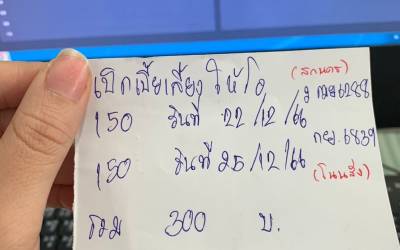 เบิกเบี้ยเลี้ยง ให้โอ (สกลนคร)
150 วันที่ 22/12/66 2 กฌ 6288
150 วันที่ 25/12/66 กย. 6839
(โนนสัง)
รวม 300 บ.